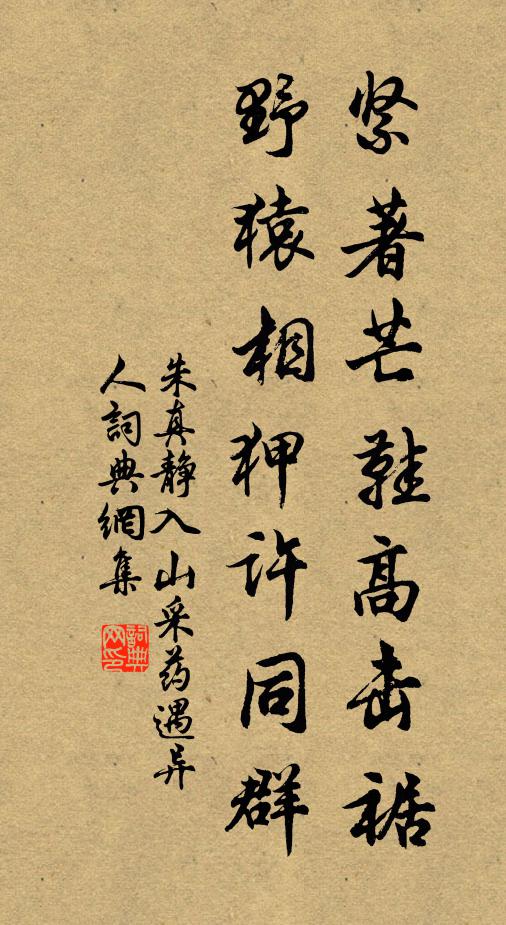 紧著芒鞋高击裾
野猿相狎许同群
朱真静入山采药遇异
人词典網集
詞典网印